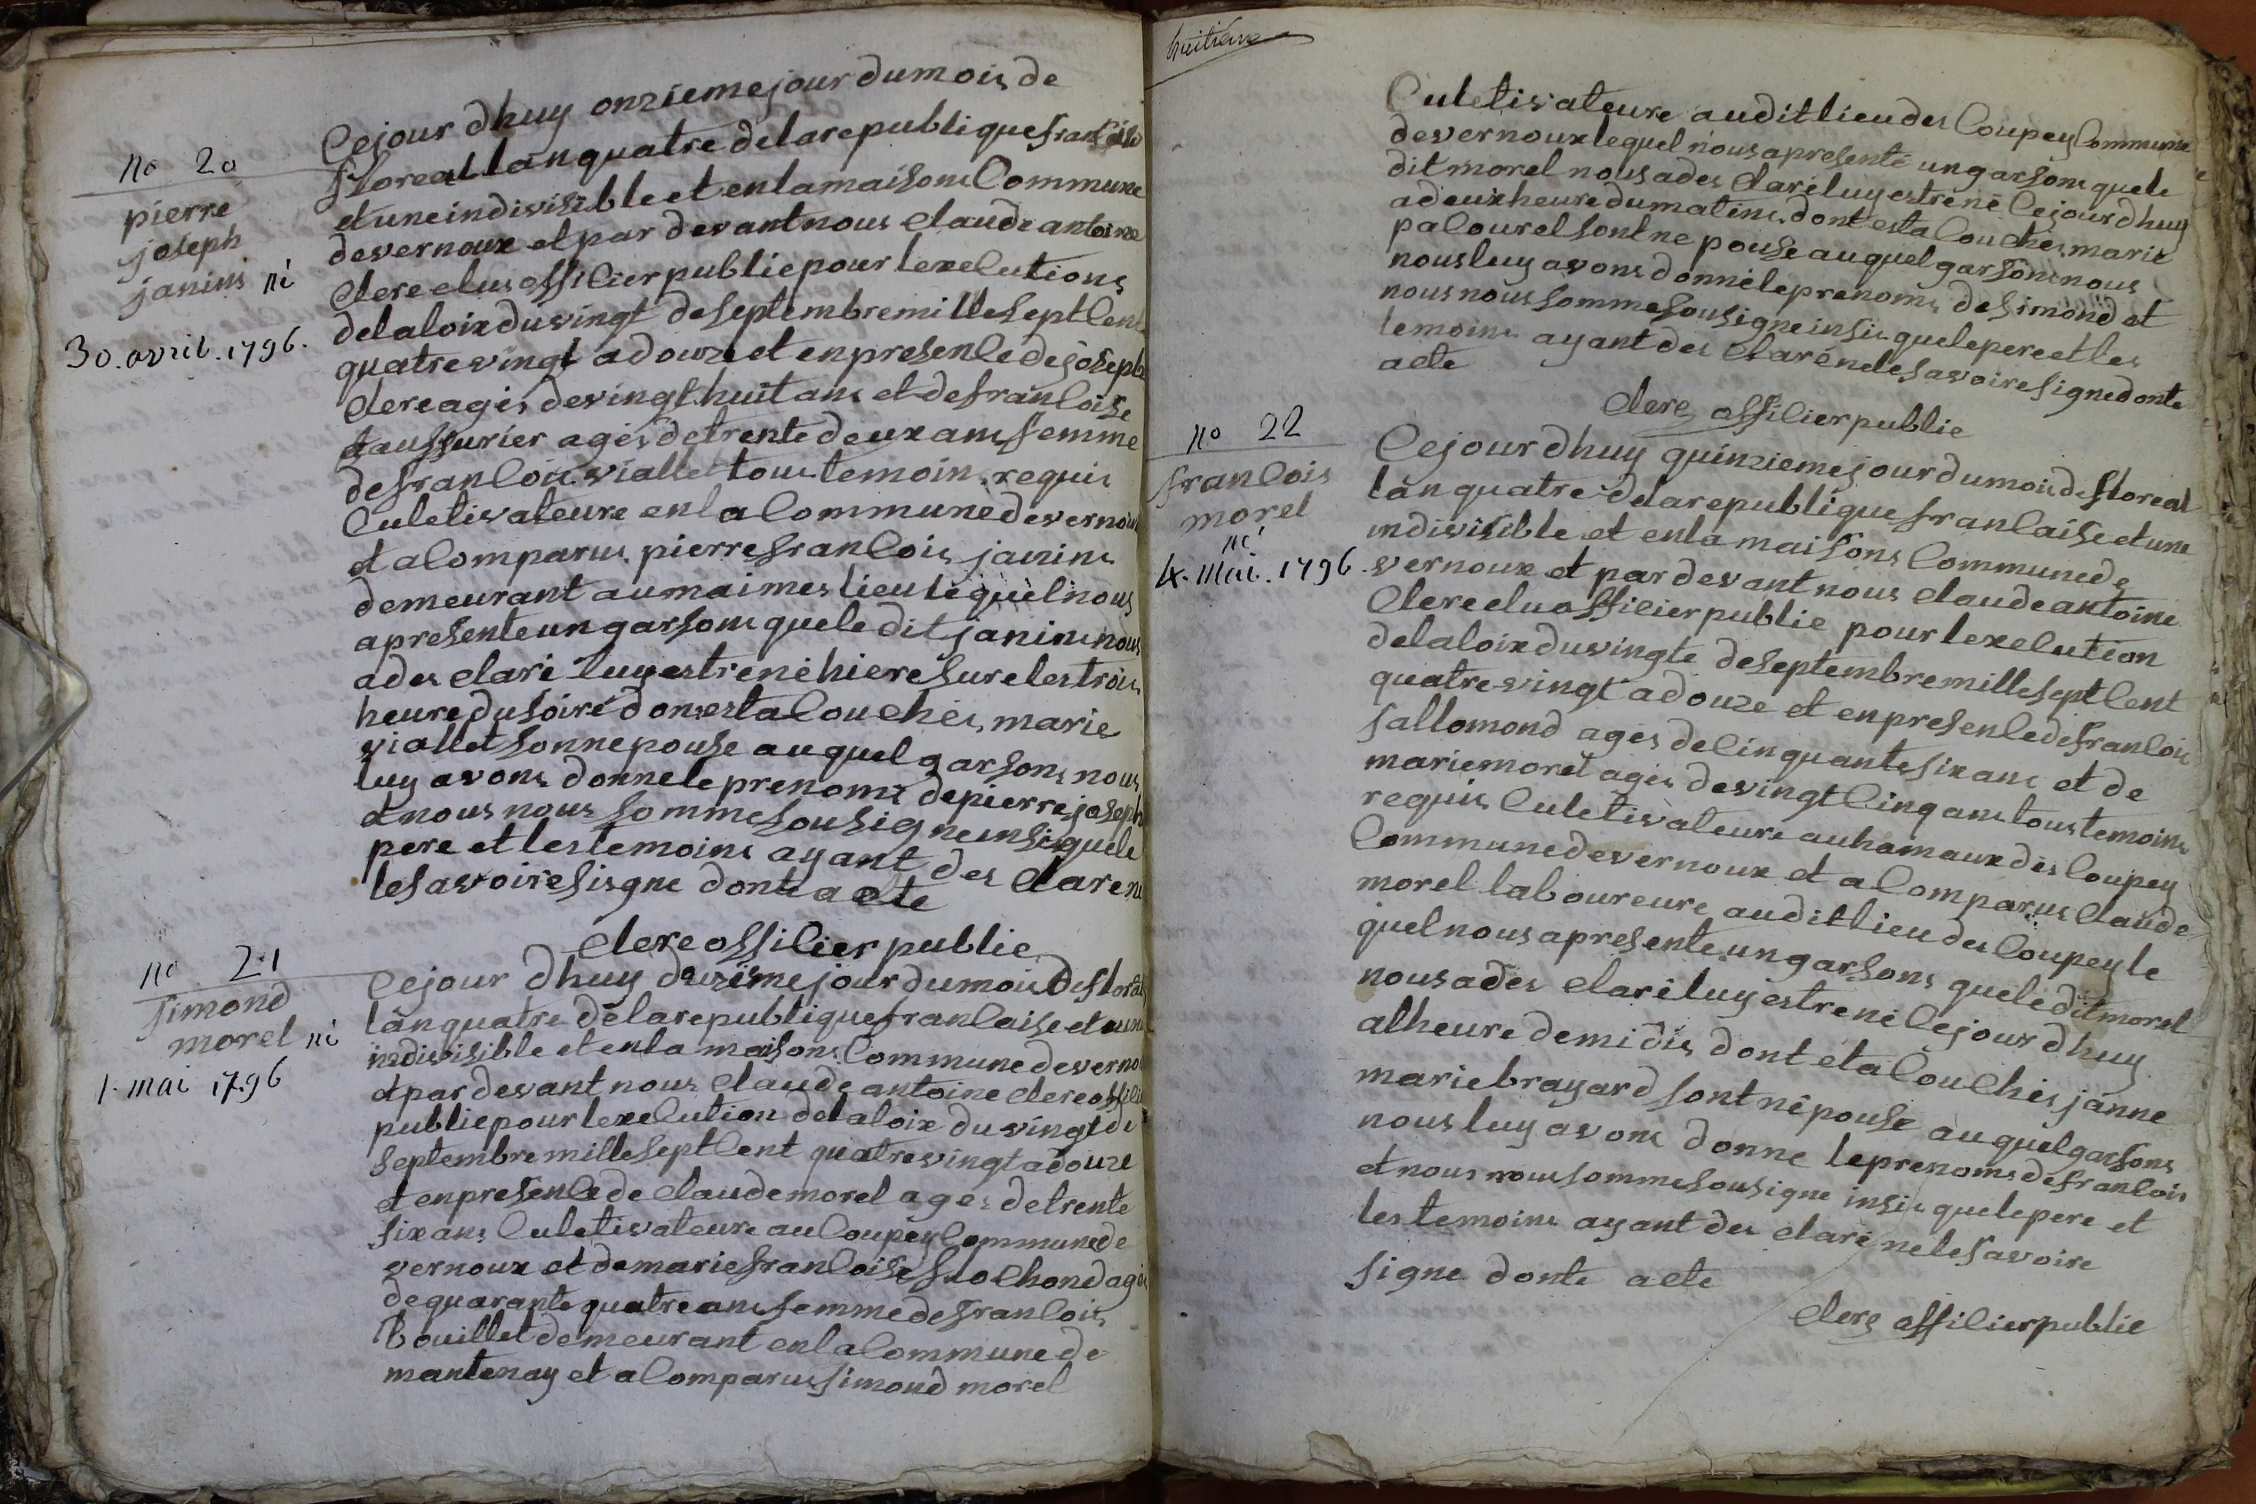 no 20
pierre
joseph
janins né
30. avril. 1796.
Cejour dhuy onziemejour dumois de
floreal lanquatre delarepublique fransaise
etuneindivisible et enlamaisons Commune
devernoux et par devantnous Claude antoine
Clere elus offilier public pour lexelutions
delaloixduvingt deseptembremilleseptCent
quatrevingt adouze et enpresenle dejoseph
Clere agés devingthuit ans et defranloise
taussurier agés detrente deux ans femme
defranlois viallet tous temoin requis
Culetivateure enlaCommune devernoux
et aComparus pierrefranlois janins
demeurant aumaimes lieu lequel nous
apresente ungarsons queledit janins nous
ades clarè luy estrené hiere surelestrois
heure dusoiré donestaCouchés marie
viallet sonnepouse auquel garsons nous
luy avons donne le prenoms de pierre joseph
et nous nous somme sousigne insi quele
pere et les temoins ayant des clare ne
lesavoire sisgne donte acte
Clere offilier public
no 21
simond
morel né
1. mai 1796
Cejour dhuy douzieme jour dumois de floreal
lanquatre delarepublique franlaise et une
indivisible et enla maisons Commune deverno
et par devant nous Claude antoine Clere offili
public pour lexelution delaloix du vingt de
septembre mille sept Cent quatrevingt adouze
et enpresenle de Claude morel ages detrente
sixans Culetivateure au Coupey Commune de
vernoux et demarie franloise fuochond agés
dequarante quatre ans femme de franlois
bouillet demeurant enlaCommune de
mantenay et aComparus simond morel
huitieme
Culetivateure audit lieu des Coupey Commune
devernoux lequel nous apresenté un garsons quele
dit morel nous ades clarè luy estrené Cejour dhuy
adeux heure dumatins dont estaCouchés marie
paCourel sont ne pouse auquel garsons nous
nous luy avons donnéle prenoms de simond et
nous nous somme sousigne insis que le pere et les
temoins ayant des claré nele savoire signe donte
acte
Clere offilier public
no 22
franlois
morel
né
4. mai. 1796.
Cejour dhuy quinzieme jour dumois de floreal
lan quatre delarepublique franlaise et une
indivisible et enla maisons Commune de
vernoux et par devant nous Claude antoine
Clere elu offilier public pour lexelution
delaloix duvingte deseptembre mille sept Cent
quatrevingt adouze et enpresenle defranlois
sallomond agés deCinquante six ans et de
marie morel agés devingt Cinq ans tous temoins
requis Culetivateure auhamaux des Coupey
Commune devernoux et aComparus Claude
morel laboureure audit lieu des Coupey le
quel nous apresente un garsons quele dit morel
nous ades clarè luy estrené Cejour dhuy
alheure demidis dont etaCouchés janne
marie brayard sont népouse auquel garsons
nous luy avons donne le prenoms de franlois
et nous nous somme sousigne insis que le pere et
les temoins ayant des claré ne le savoire
signe donte acte
Clere offilier public